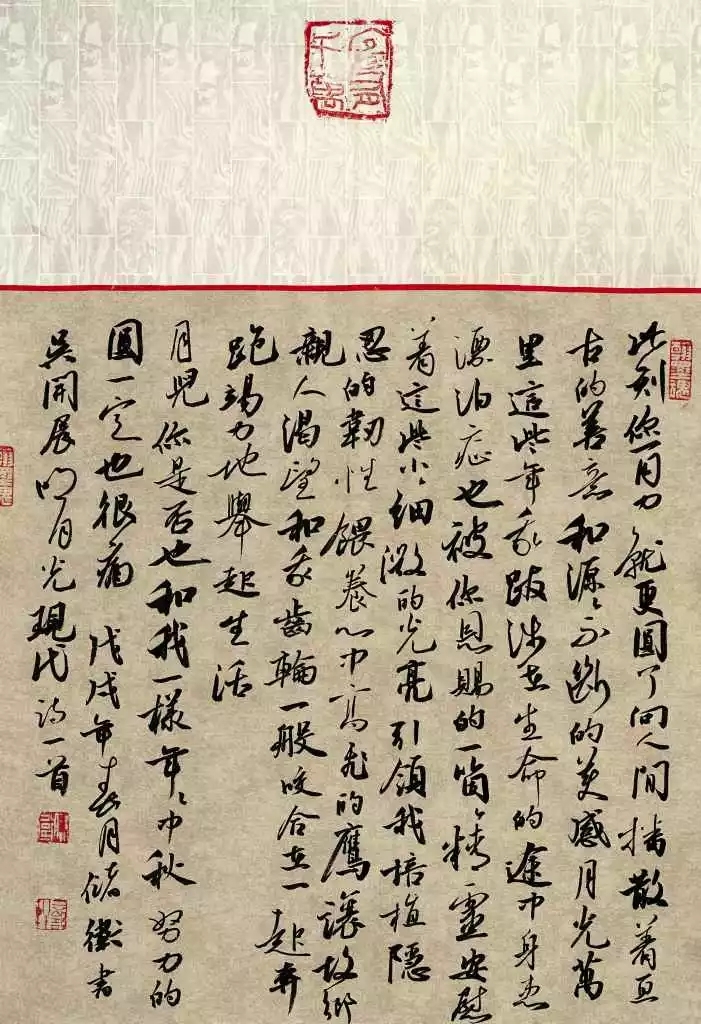 此刻你一用力就更圓了向人間播散着亘
古的善意和源〻不斷的美感月光萬
里這些年我跋涉在生命的途中身患
漂泊症也被你恩賜的一箇〻精靈安慰
着這些小〻細微的光亮引領我培植隱
忍的韌性餵養心中高飛的鷹讓故鄉
親人渴望和我齒輪一般咬合在一起奔
跑竭力地舉起生活
月兒你是否也和我一樣年〻中秋努力的
圓一定也很痛 戊戌年春月儲衛書
吳開展明月光現代詩一首